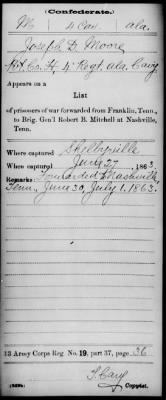 (Confederate.)
M 4 Cav. Ala.
Joseph D. Moore
Pvt. Co. H, 4" Regt. Ala. Cavy.
Appears on a
List
of prisoners of war forwarded from Franklin, Tenn.,
to Brig. Gen'l Robert B. Mitchell at Nashville,
Tenn.
Where captured Shelbyville
When captured June 27, 1863.
Remarks: Forwarded to Nashville,
Tenn., June 30, July 1, 1863.
13 Army Corps Reg. No. 19, part 37, page 36
Copyist.